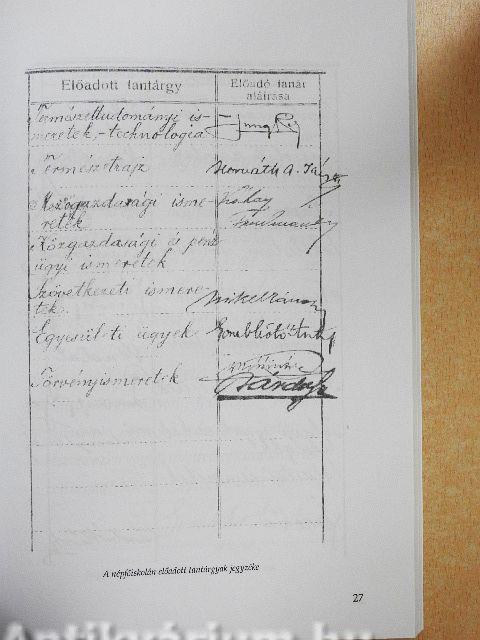 Előadott tantárgy
Előadó tanár
aláírása
Természettudományi is-
meretek,-technologia
Jung
Természetrajz
Horváth A.
Mezőgazdasági isme-
retek
Közgazdasági és pénz
ügyi ismeretek
Szövetkezeti ismere-
tek
Mikel
Egyesületi ügyek
Törvényismeretek
A népfőiskolán előadott tantárgyak jegyzéke
27
Antikvárium.hu